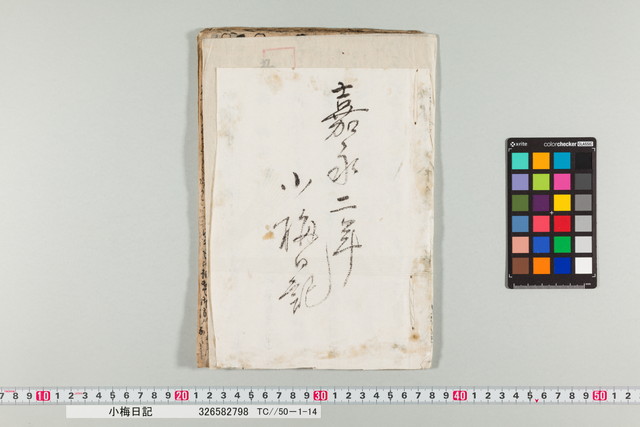 嘉永二年
小梅日記
x-rite colorchecker CLASSIC
7 8 9 10 1 2 3 4 5 6 7 8 9 20 1 2 3 4 5 6 7 8 9 30 1 2 3 4 5 6 7 8 9 40 1 2 3 4 5 6 7 8 9 50 1 2
小梅日記 326582798 TC//50-1-14